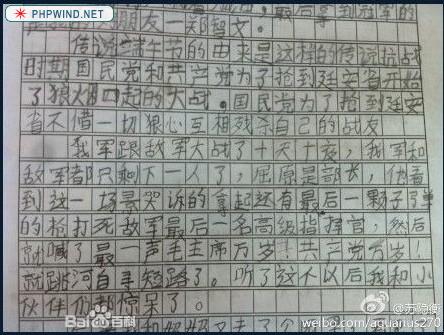 PHPWIND.NET
最后拿到冠军的
朋友一郑智文。
传说端午节的由来是这样的传说抗战
时期国民党和共产党为了抢到延安省开始
了狼烟四起的大战。国民党为了抢到延安
省不惜一切狠心互相残杀自己的战友
我军跟敌军大战了十天十夜，我军和
敌军都只剩下一人了，屈原是部长，他看
到这一场景哭诉的拿起还有最后一颗子弹
的枪打死敌军最后一名高级指挥官，然后
就喊了最一声毛主席万岁！共产党万岁！
就跳河自寻短路了。听了这个以后我和小
伙伴们都惊呆了。
Bai百科
@苏隐衡
weibo.com/aguanus270